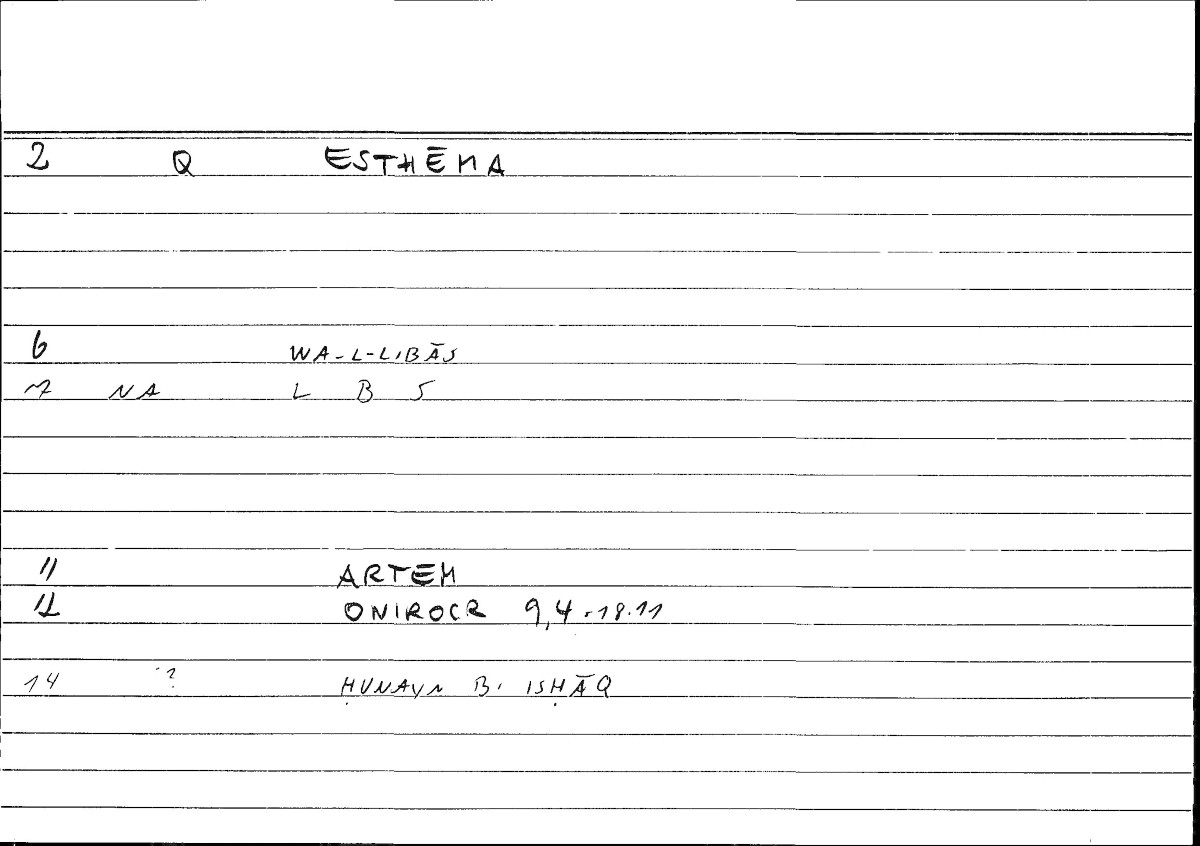 2 Q ESTHĒMA
6 WA-L-LIBĀS
7 NA L B S
11 ARTEM
12 ONIROCR 9,4.18.11
14 ? ḤUNAYN B. ISḤĀQ